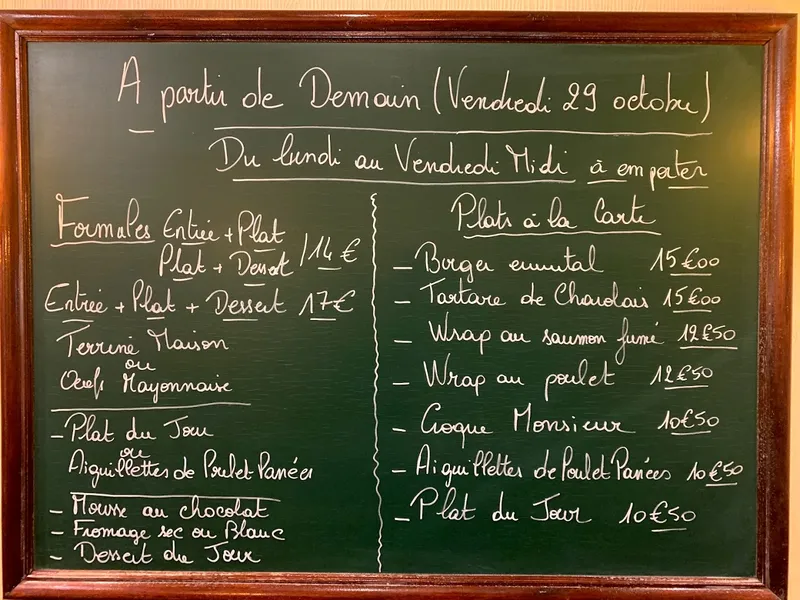 A partir de Demain (Vendredi 29 octobre)
Du lundi au Vendredi Midi à emporter
Formules Entrée + Plat
Plat + Dessert / 14 €
Entrée + Plat + Dessert 17 €
Terrine Maison
ou
Oeufs Mayonnaise
- Plat du Jour
ou
Aiguillettes de Poulet Panées
- Mousse au chocolat
- Fromage sec ou Blanc
- Dessert du Jour
Plats à la Carte
- Burger emmental 15€00
- Tartare de Charolais 15€00
- Wrap au saumon fumé 12€50
- Wrap au poulet 12€50
- Croque Monsieur 10€50
- Aiguillettes de Poulet Panées 10€50
- Plat du Jour 10€50